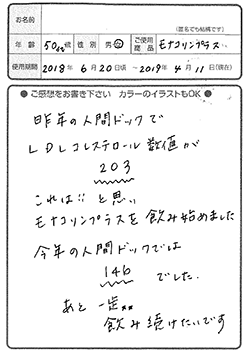 お名前
(匿名でも結構です)
年齢 50代 歳 性別 男・女 ご使用商品 モナコリンプラス
使用期間 2018年6月20日頃 ～ 2019年4月11日(現在)
● ご感想をお書き下さい カラーのイラストもOK ●
昨年の人間ドックで
LDLコレステロール数値が
203
これは!!と思い
モナコリンプラスを飲み始めました
今年の人間ドックでは
146
でした.
あと一定
飲み続けたいです